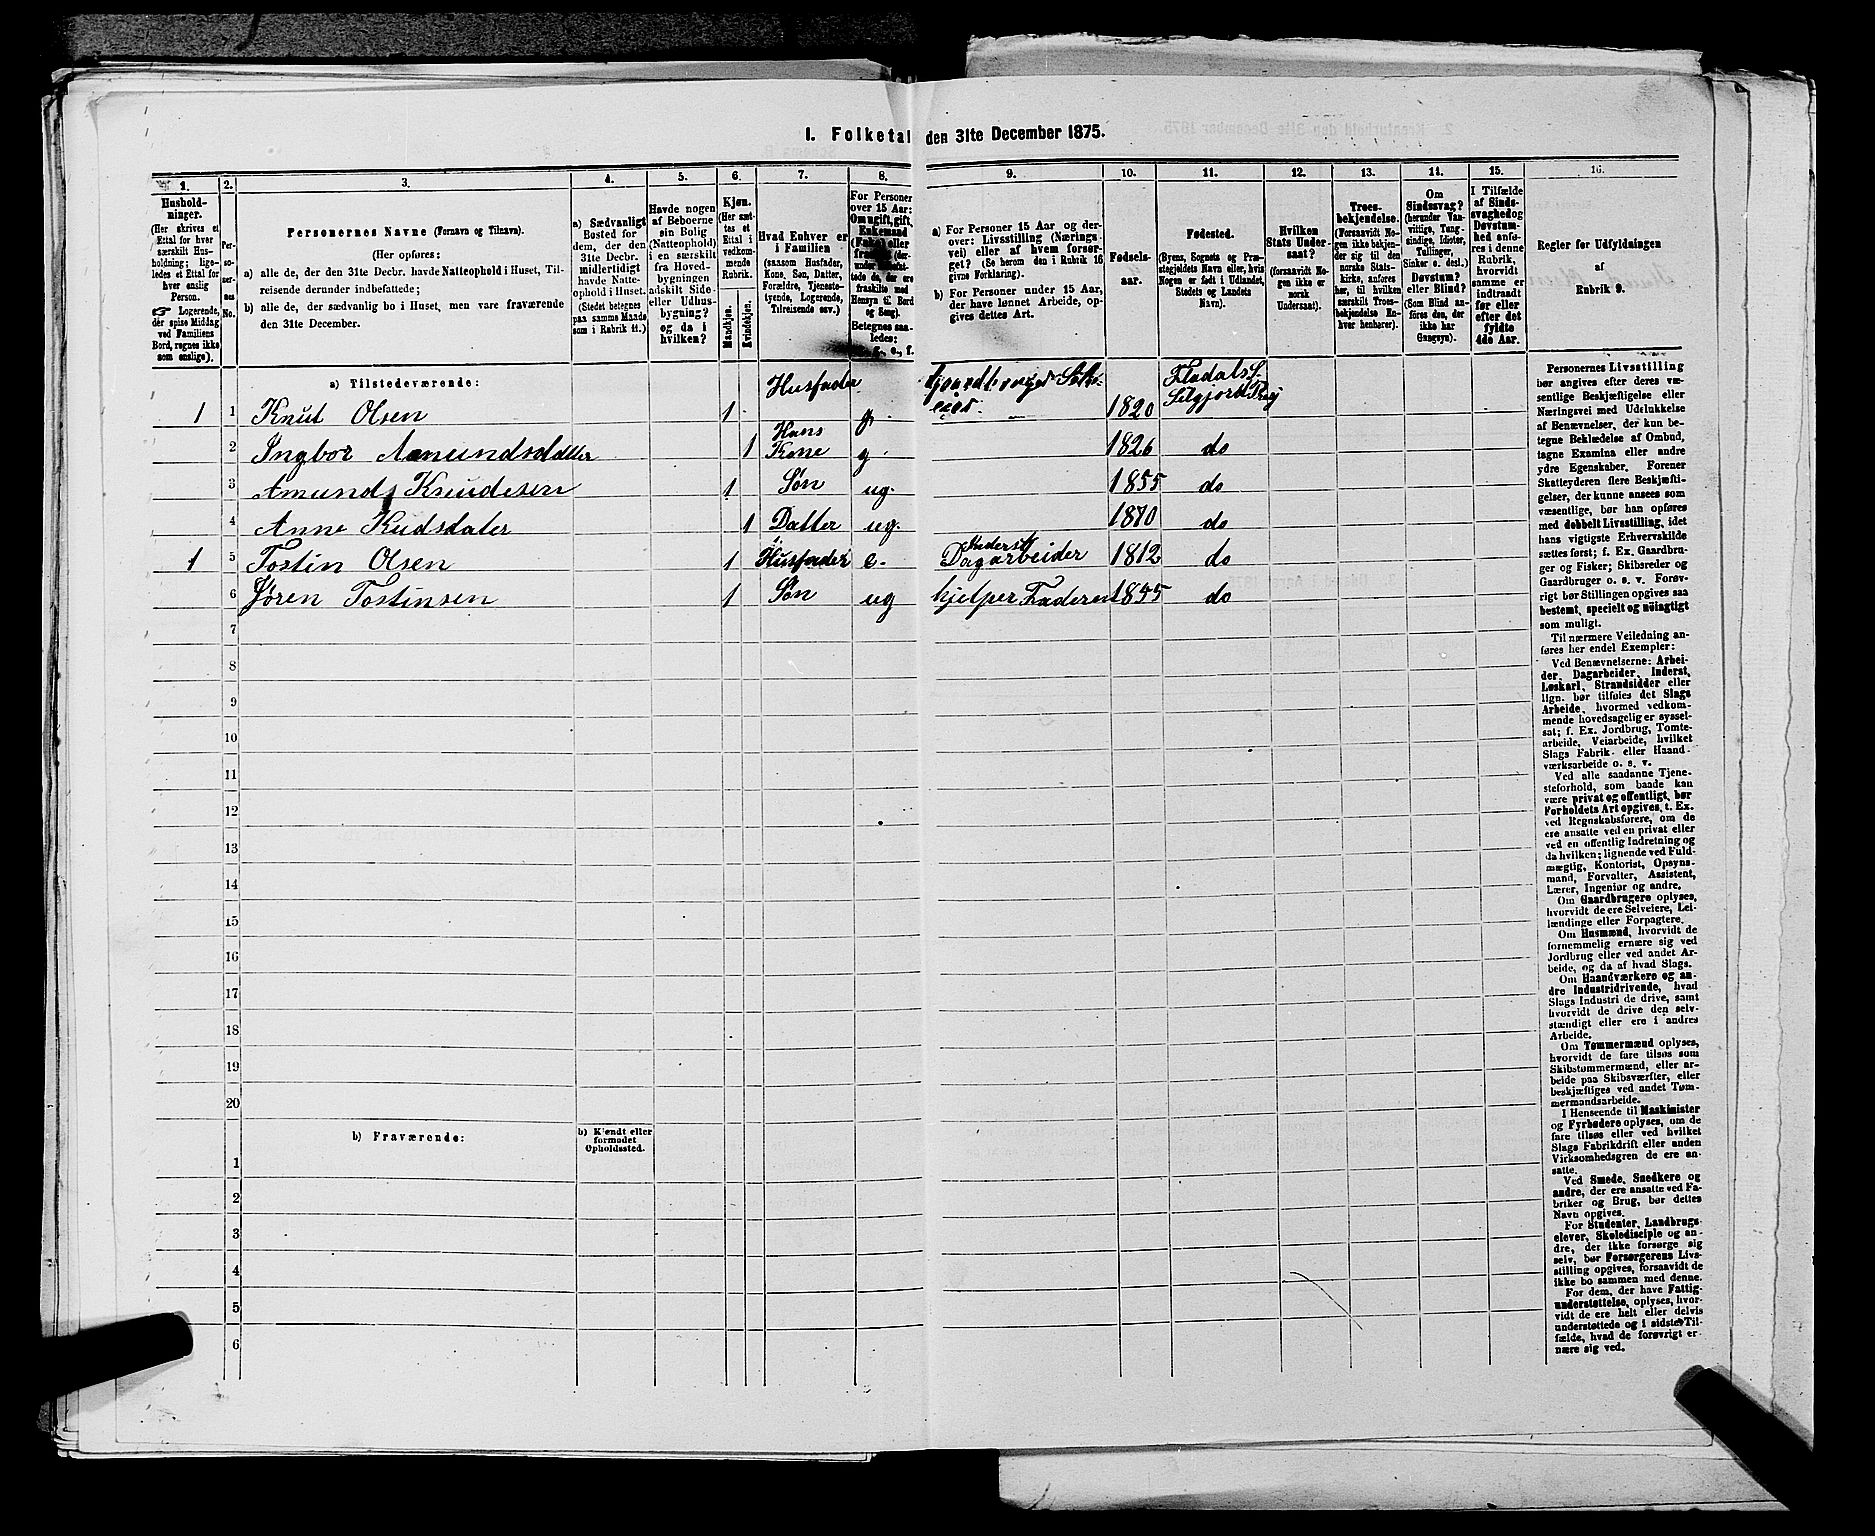 I. Folketal den 31te December 1875.
1.
2.
3.
4.
5.
6.
7.
8.
9.
10.
11.
12.
13.
14.
15.
16.
Hushold-
ninger.
(Her skrives et
Ettal for hver
særskilt Hus-
holdning; lige-
ledes et Ettal for
hver enslig
Person.
☞ Logerende,
der spise Middag
ved Familiens
Bord, regnes ikke
som enslige).
Per-
soner-
nes
No.
Personernes Navne (Fornavn og Tilnavn).
(Her opføres:
a) alle de, der den 31te Decbr. havde Natteophold i Huset, Til-
reisende derunder indbefattede;
b) alle de, der sædvanlig bo i Huset, men vare fraværende
den 31te December.
a) Sædvanligt
Bosted for
dem, der den
31te Decbr.
midlertidigt
havde Natte-
ophold i Huset.
(Stedet betegnes
paa samme Maade
som i Rubrik 11.)
Havde nogen
af Beboerne
sin Bolig
(Natteophold)
i en særskilt
fra Hoved-
bygningen
adskilt Side-
eller Udhus-
bygning?
og da i
hvilken?
Kjøn.
(Her sæt-
tes et
Ettal i
vedkom-
mende
Rubrik.
Mandkjøn.
Kvindekjøn.
Hvad Enhver er
i Familien
(saasom Husfader,
Kone, Søn, Datter,
Forældre, Tjeneste-
tyende, Logerende,
Tilreisende osv.)
For Personer
over 15 Aar:
Om ugift, gift,
Enkemand
(Enke) eller
Hensyn til Bord
og Seng).
Betegnes saa-
ledes:
a) For Personer 15 Aar og der-
over: Livsstilling (Nærings-
vei) eller af hvem forsør-
get? (Se herom den i Rubrik 16
givne Forklaring).
b) For Personer under 15 Aar,
der have lønnet Arbeide, op-
gives dettes Art.
Fødsels-
aar.
Fødested.
(Byens, Sognets og Præ-
stegjeldets Navn, eller, hvis
Nogen er født i Udlandet,
Stedets og Landets
Navn).
Hvilken
Stats Under-
saat?
(forsaavidt No-
gen ikke er
norsk
Undersaat).
Troes-
bekjendelse.
(Forsaavidt No-
gen ikke bekjen-
der sig til den
norske Stats-
kirke, anføres
her, til hvilken
særskilt Troes-
bekjendelse En-
hver henhører).
Om
Sindssvag?
(herunder Van-
vittige, Tung-
sindige, Idioter,
Tullinger,
Sinker o. desl.)
Døvstum?
eller Blind?
(Som Blind an-
føres den, der
ikke har
Gangsyn).
I Tilfælde
af Sinds-
svaghed og
Døvstum-
hed anfø-
res i denne
Rubrik,
hvorvidt
samme er
indtraadt
før eller
efter det
fyldte
4de Aar.
Regler for Udfyldningen
af
Rubrik 9.
a) Tilstedeværende:
1 1 Knut Olsen 1 Husfader g. Gaardbruger Selv-
eier. 1820 Fladals S.
Silgjord Præg
2 Ingbor Amundsdatter 1 Hans
Kone g. 1826 do
3 Amund Knudesen 1 Søn ug. 1855 do
4 Anne Kudsdater 1 Datter ug. 1870 do
1 5 Tostin Olsen 1 Husfader e. Inderst
Dagarbeider 1812 do
6 Søren Tostinsen 1 Søn ug hjelper Faderen 1855 do
7
8
9
10
11
12
13
14
15
16
17
18
19
20
b) Fraværende:
b) Kjendt eller
formodet
Opholdssted.
1
2
3
4
5
6
Personernes Livsstilling
bør angives efter deres væ-
sentlige Beskjæftigelse eller
Næringsvei med Udelukkelse
af Benævnelser, der kun be-
tegne Beklædelse af Ombud,
tagne Examina eller andre
ydre Egenskaber. Forener
Skatteyderen flere Beskjæfti-
gelser, der kunne ansees som
væsentlige, bør han opføres
med dobbelt Livsstilling, idet
hans vigtigste Erhvervskilde
sættes først; f. Ex. Gaardbru-
ger og Fisker; Skibsreder og
Gaardbruger o. s. v. Forøv-
rigt bør Stillingen opgives saa
bestemt, specielt og nøiagtigt
som muligt.
Til nærmere Veiledning an-
føres her endel Exempler:
Ved Benævnelserne: Arbei-
der, Dagarbeider, Inderst,
Løskarl, Strandsidder eller
lign. bør tilføies det Slags
Arbeide, hvormed vedkom-
mende hovedsagelig er syssel-
sat; f. Ex. Jordbrug, Tomte-
arbeide, Veiarbeide, hvilket
Slags Fabrik- eller Haand-
værksarbeide o. s. v.
Ved alle saadanne Tjene-
steforhold, som baade kan
være privat og offentligt, bør
Forholdets Art opgives, t. Ex.
ved Regnskabsførere, om de
ere ansatte ved en privat eller
ved en offentlig Indretning og
da hvilken; lignende ved Fuld-
mægtig, Kontorist, Opsyns-
mand, Forvalter, Assistent,
Lærer, Ingeniør og andre.
Om Gaardbrugere oplyses,
hvorvidt de ere Selveiere, Lei-
lændinge eller Forpagtere.
Om Husmænd, hvorvidt de
fornemmelig ernære sig ved
Jordbrug eller ved andet Ar-
beide, og da af hvad Slags.
Om Haandværkere og an-
dre Industridrivende, hvad
Slags Industri de drive, samt
hvorvidt de drive den selv-
stændigt eller ere i andres
Arbeide.
Om Tømmermænd oplyses,
hvorvidt de fare tilsøs som
Skibstømmermænd, eller ar-
beide paa Skibsværfter, eller
beskjæftiges ved andet Tøm-
mermandsarbeide.
I Henseende til Maskinister
og Fyrbødere oplyses, om de
fare tilsøs eller ved hvilket
Slags Fabrikdrift eller anden
Virksomhedsgren de ere an-
satte.
Ved Smede, Snedkere og
andre, der ere ansatte ved Fa-
briker og Brug, bør dettes
Navn opgives.
For Studenter, Landbrugs-
elever, Skoledisciple og an-
dre, der ikke forsørge sig
selv, bør Forsørgerens Livs-
stilling opgives, forsaavidt de
ikke bo sammen med denne.
For dem, der have Fattig-
understøttelse, oplyses, hvor-
vidt de ere helt eller delvis
understøttede og i sidste Til-
fælde, hvad de forøvrigt er-
nære sig ved.